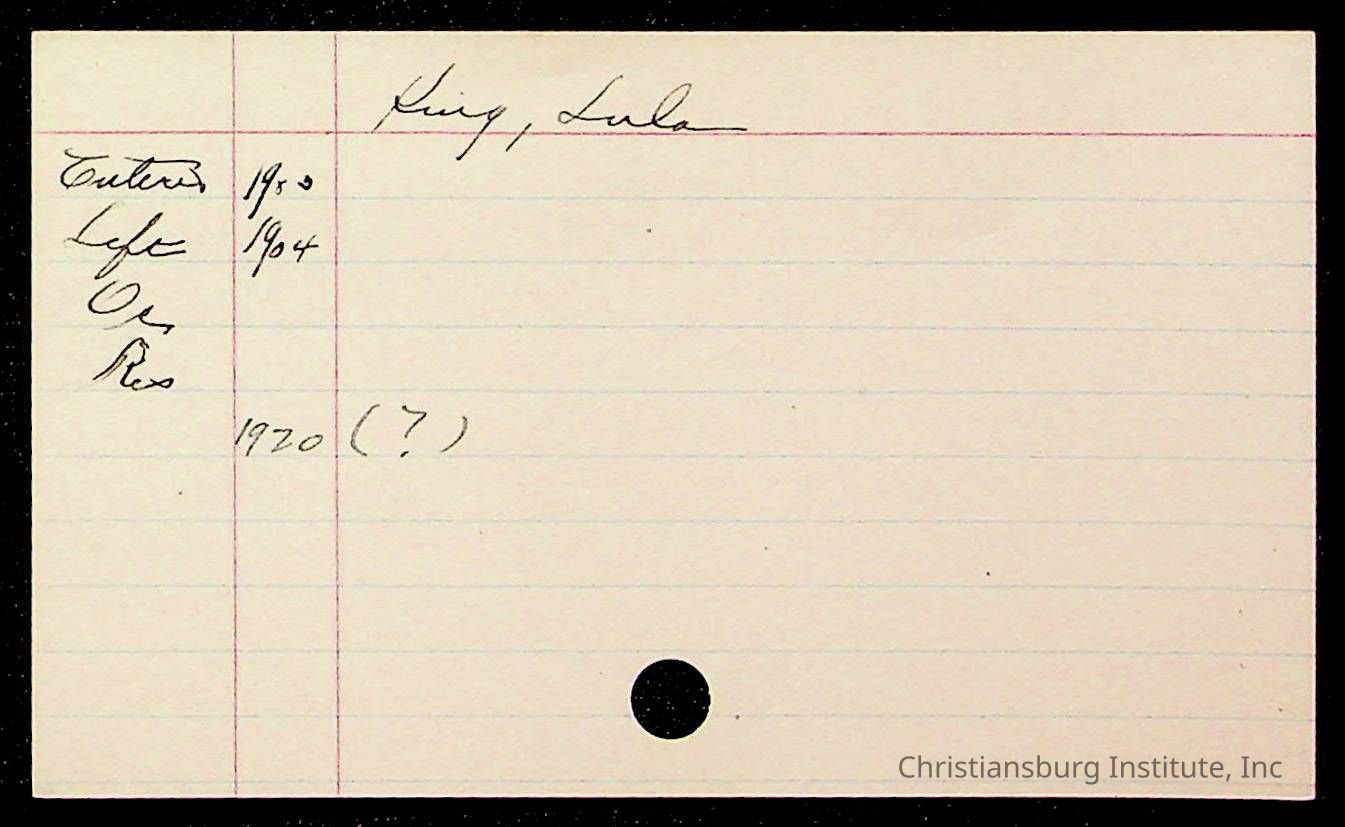 King, Lula
Entered 1900
Left 1904
Oc
Res
1920 (?)
Christiansburg Institute, Inc